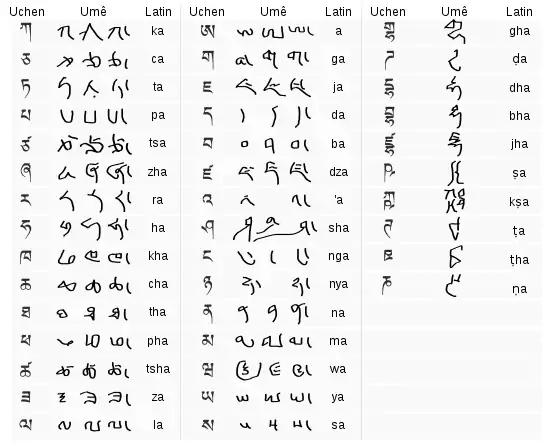 Uchen Umê Latin Uchen Umê Latin Uchen Umê Latin
ཀ ka ཨ a གྷ gha
ཅ ca ག ga ཌ ḍa
ཏ ta ཇ ja དྷ dha
པ pa ད da བྷ bha
ཙ tsa བ ba ཛྷ jha
ཞ zha ཛ dza ཥ ṣa
ར ra འ 'a ཀྵ kṣa
ཧ ha ཤ sha ཊ ṭa
ཁ kha ང nga ཋ ṭha
ཆ cha ཉ nya ཎ ṇa
ཐ tha ན na
ཕ pha མ ma
ཚ tsha ཝ wa
ཟ za ཡ ya
ལ la ས sa